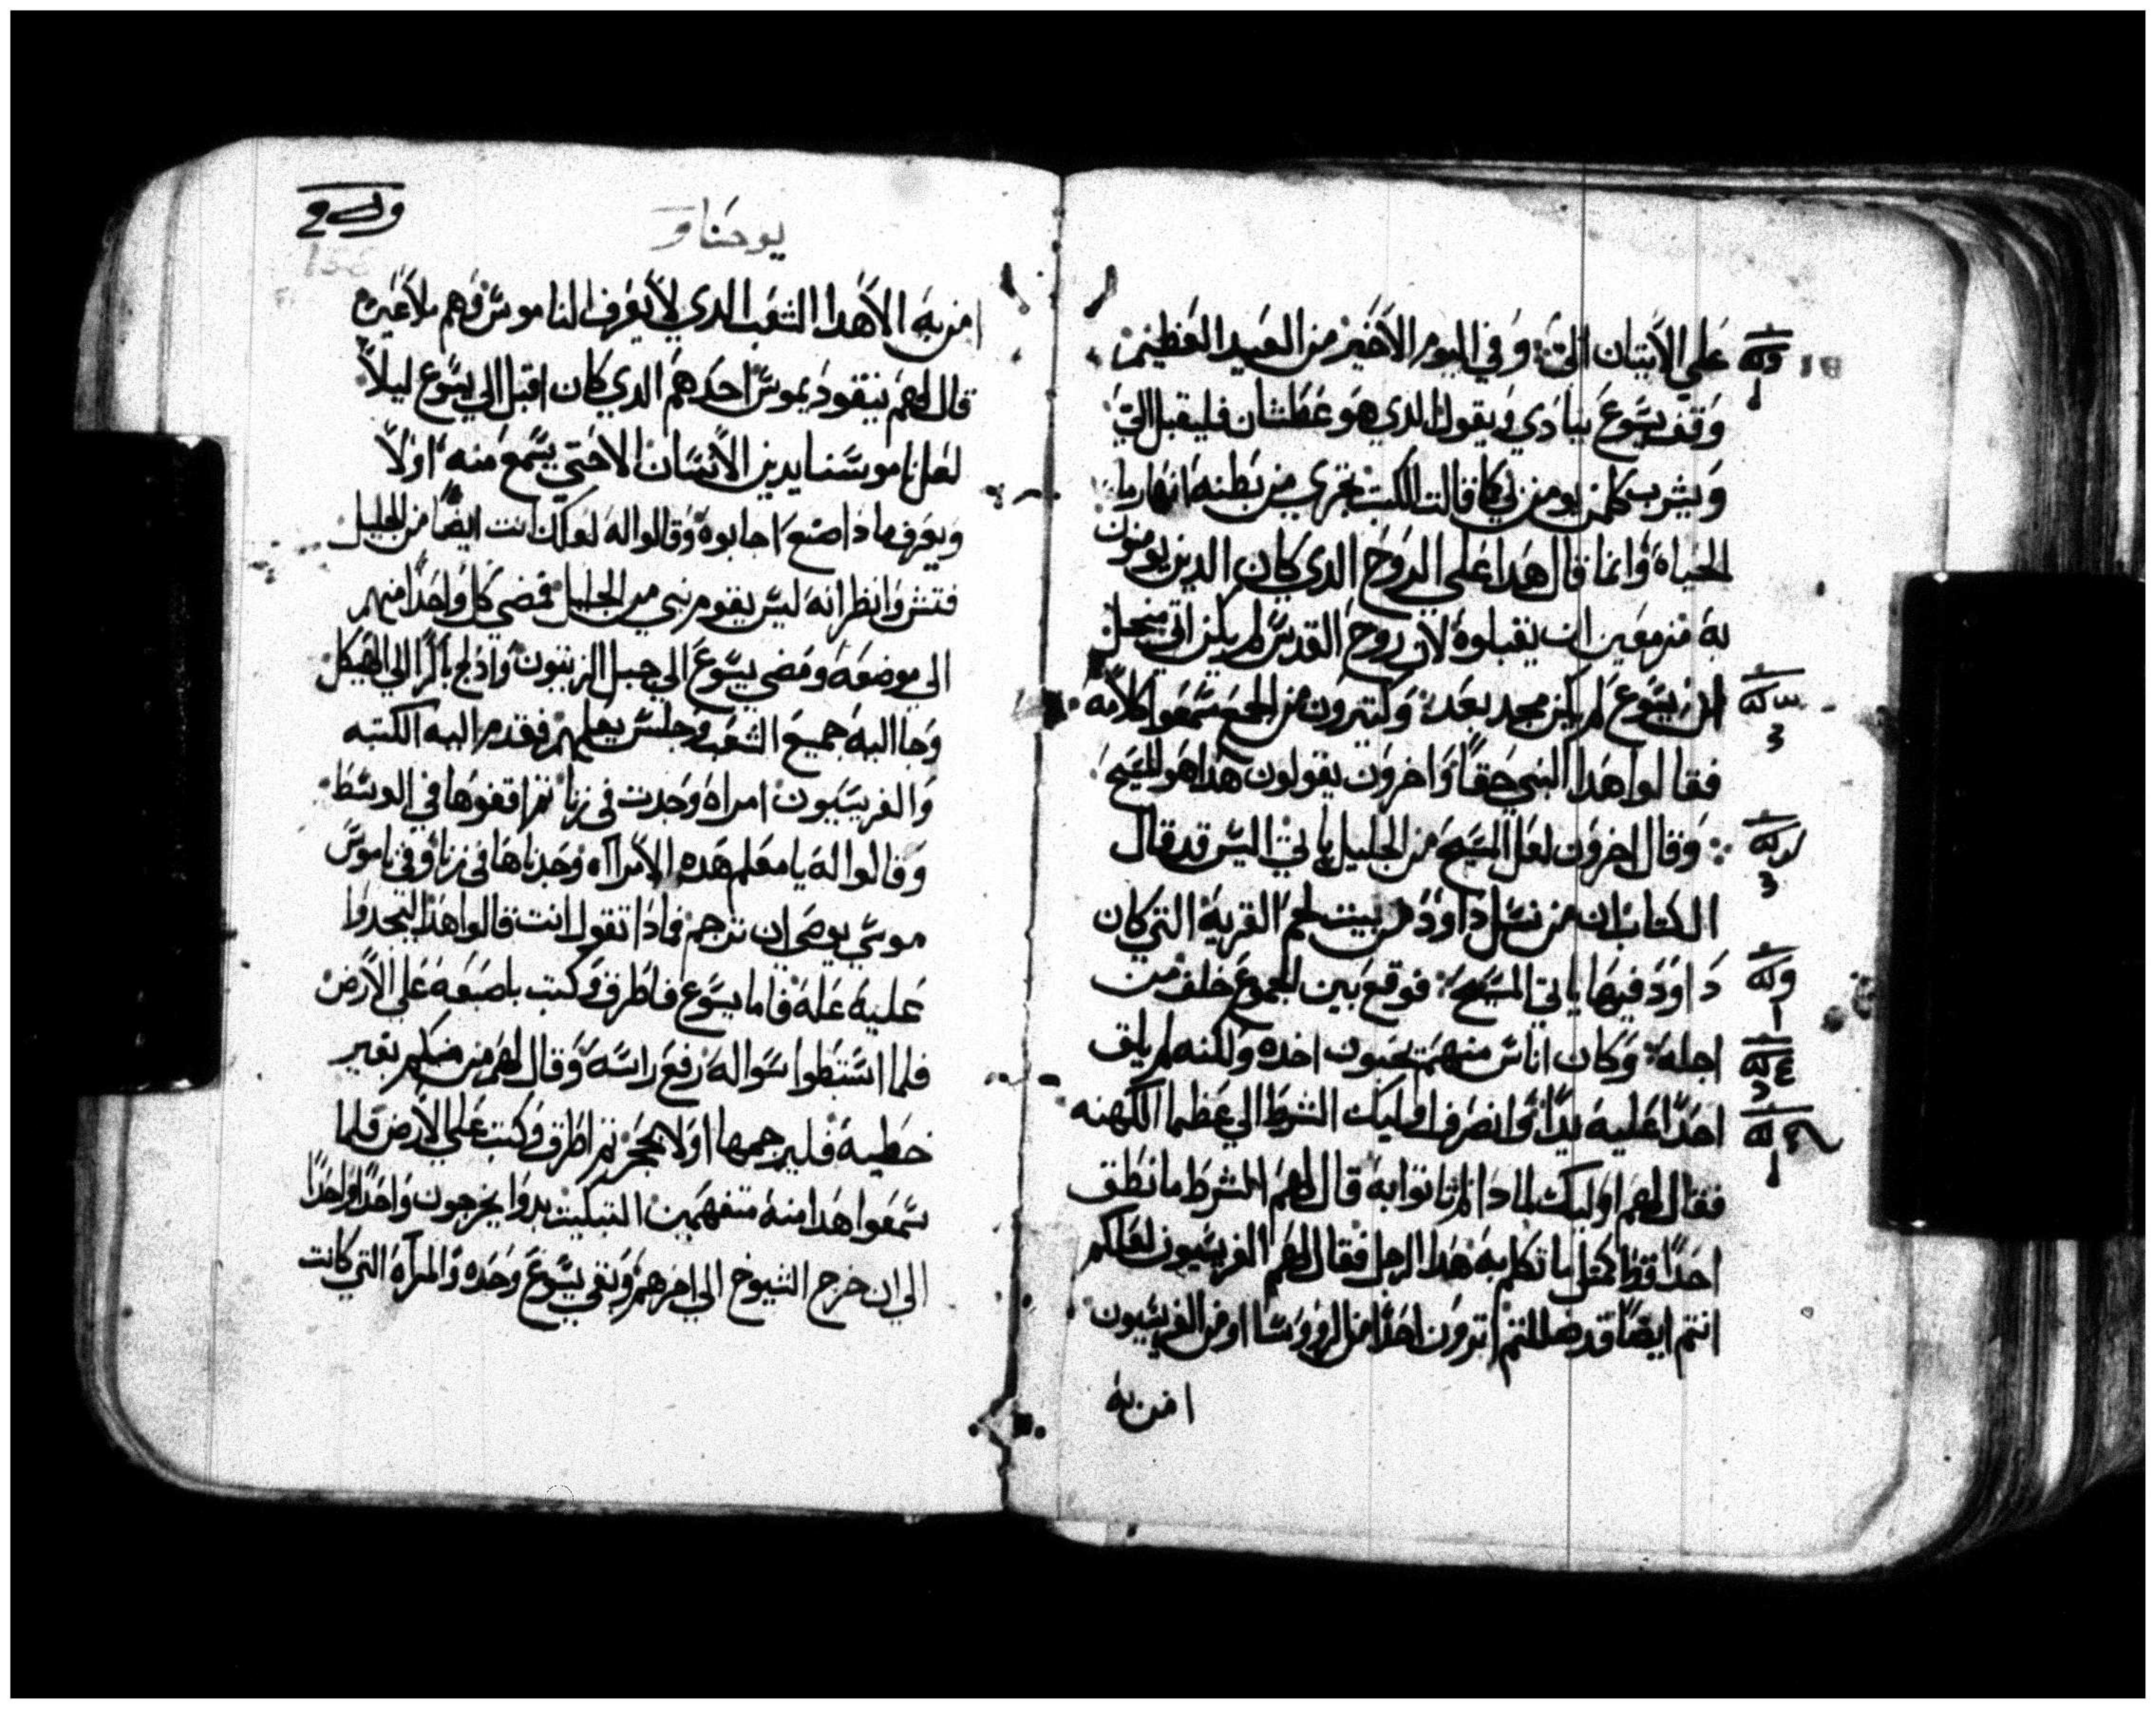 علي الاتيان الي وفي اليوم الاخير من العيد العظيم
وقف يسوع ينادي ويقول الدي هو عطشان فليقبل الي
ويشرب كلمن يومن بي كما قالت الكتب تجري من بطنه انهار ما
الحياه وانما قال هدا علي الروح الدي كان الدين يومنون
به مزمعين ان يقبلوه لان روح القدس لم يكن اتي منجل
ان يسوع لم يكن مجد بعد وكتيرون من الجمع سمعوا كلامه
فقالوا هدا النبي حقا واخرون يقولون هدا هو المسيح
وقال اخرون لعل المسيح من الجليل ياتي اليس قد قال
الكتاب ان من نسل داود من بيت لحم القرية التي كان
داود فيها ياتي المسيح فوقع بين الجموع خلف من
اجله وكان اناس منهم يحبون اخده ولكنه لم يلق
احدا عليه يدا وانصرف اوليك الشرط الي عظما الكهنه
فقال لهم اوليك لمادا لم تاتوا به قال لهم الشرط ما نطق
احدا قط كمتل ما تكلم به هدا الرجل فقال لهم الفريسيون لعلكم
انتم ايضا قد ضللتم اترون احدا من الروسا او من الفريسيون
امن به
يوحنا
امن به الا هدا الشعب الدي لا يعرف الناموس فهم ملاعين
قال لهم نيقوديموس احدهم الدي كان اقبل الي يسوع ليلا
لعل ناموسنا يدين الانسان الا حتي يسمع منه اولا
ويعرف مادا صنع اجابوه وقالوا له لعلك انت ايضا من الجليل
فتش وانظر انه ليس يقوم نبي من الجليل فمضي كل واحدا منهم
الي موضعه ومضي يسوع الي جبل الزيتون وادلج باكرا الي الهيكل
وجا اليه جميع الشعب وجلس يعلمهم فقدم اليه الكتبه
والفريسيون امراه وجدت في زنا تم اقفوها في الوسط
وقالوا له يا معلم هده الامراه وجدناها في زنا وفي ناموس
موسي يوصي ان ترجم فمادا تقول انت قالوا هدا ليجدوا
عليه علة فاما يسوع فاطرق وكتب باصبعه علي الارض
فلما استبطوا سواله رفع راسه وقال لهم من منكم بغير
خطية فليرجمها اولا بحجر تم اطرق وكتب علي الارض فلما
سمعوا هدا منه متفهمين التبكيت بدوا يخرجون واحدا واحدا
الي ان خرج الشيوخ الي اخرهم وبقي يسوع وحده والمراة التي كانت